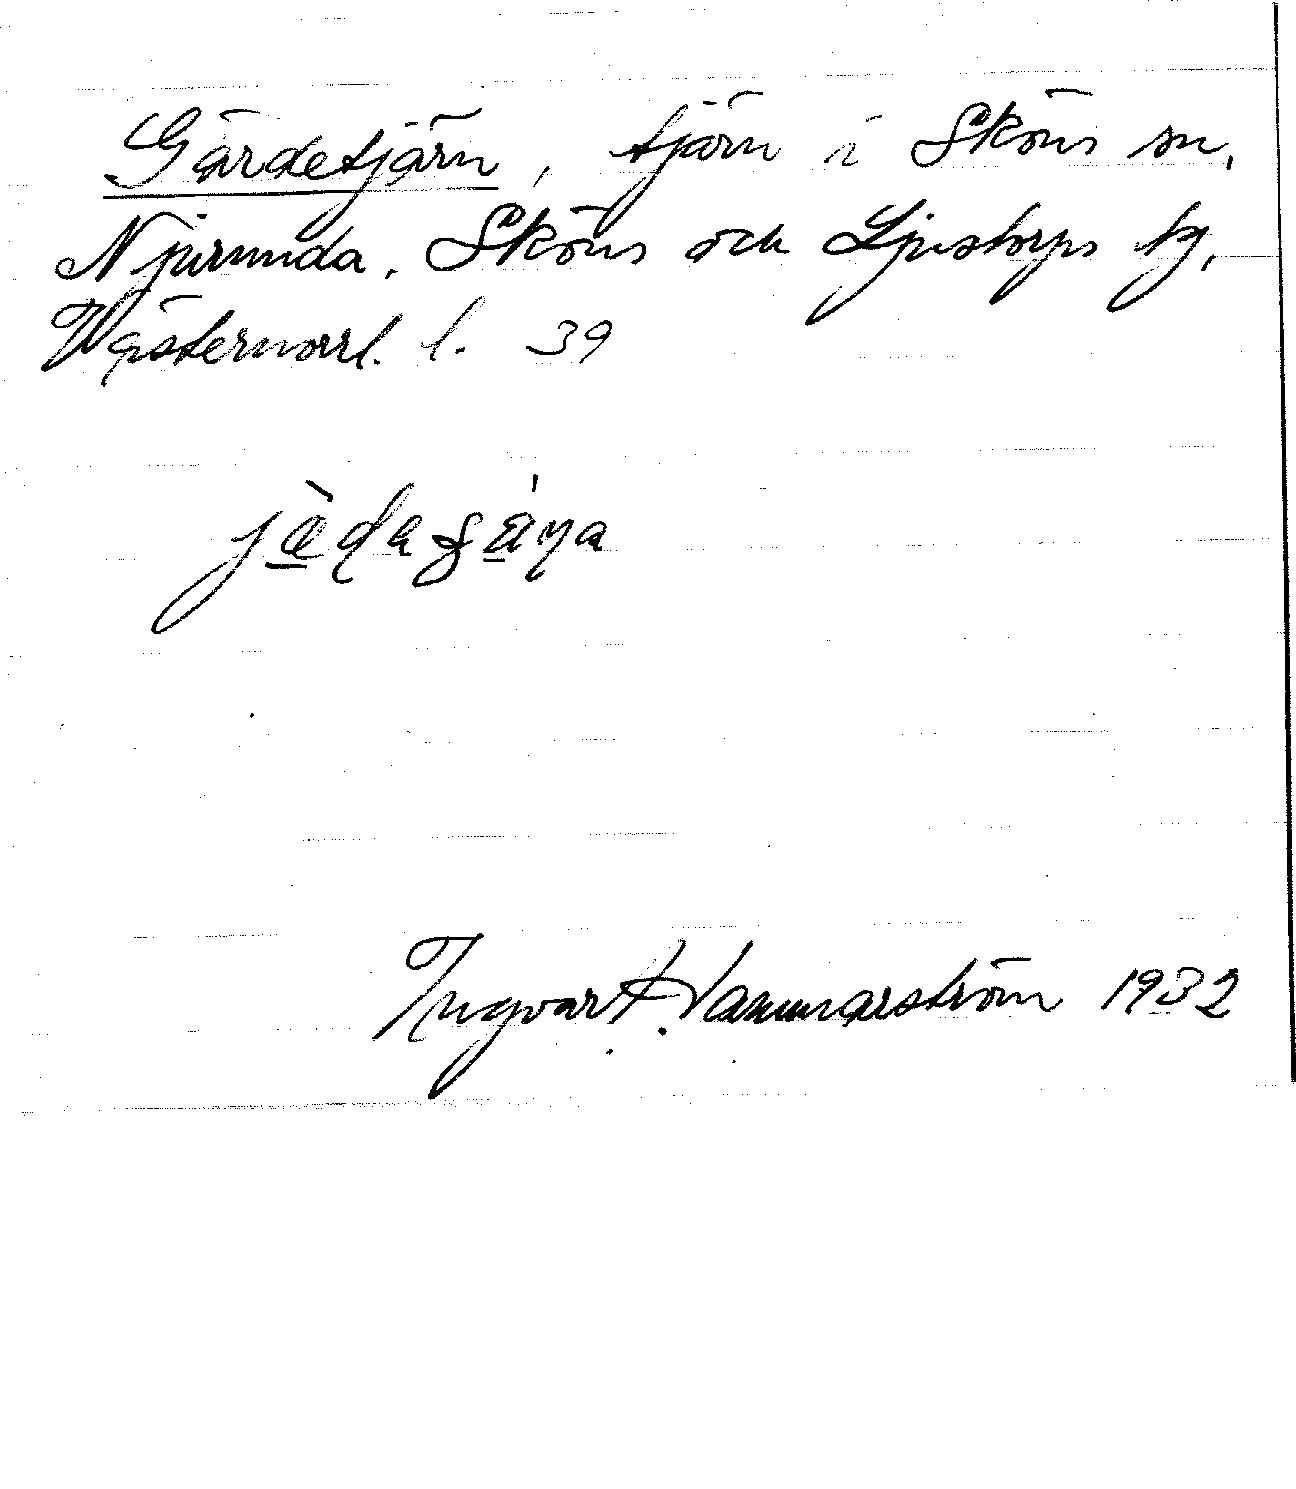 Gärdetjärn, tjärn i Sköns sn,
Njurunda, Sköns och Ljustorps tg,
Västernorrl. l. 39
Ingvar Hammarström 1932